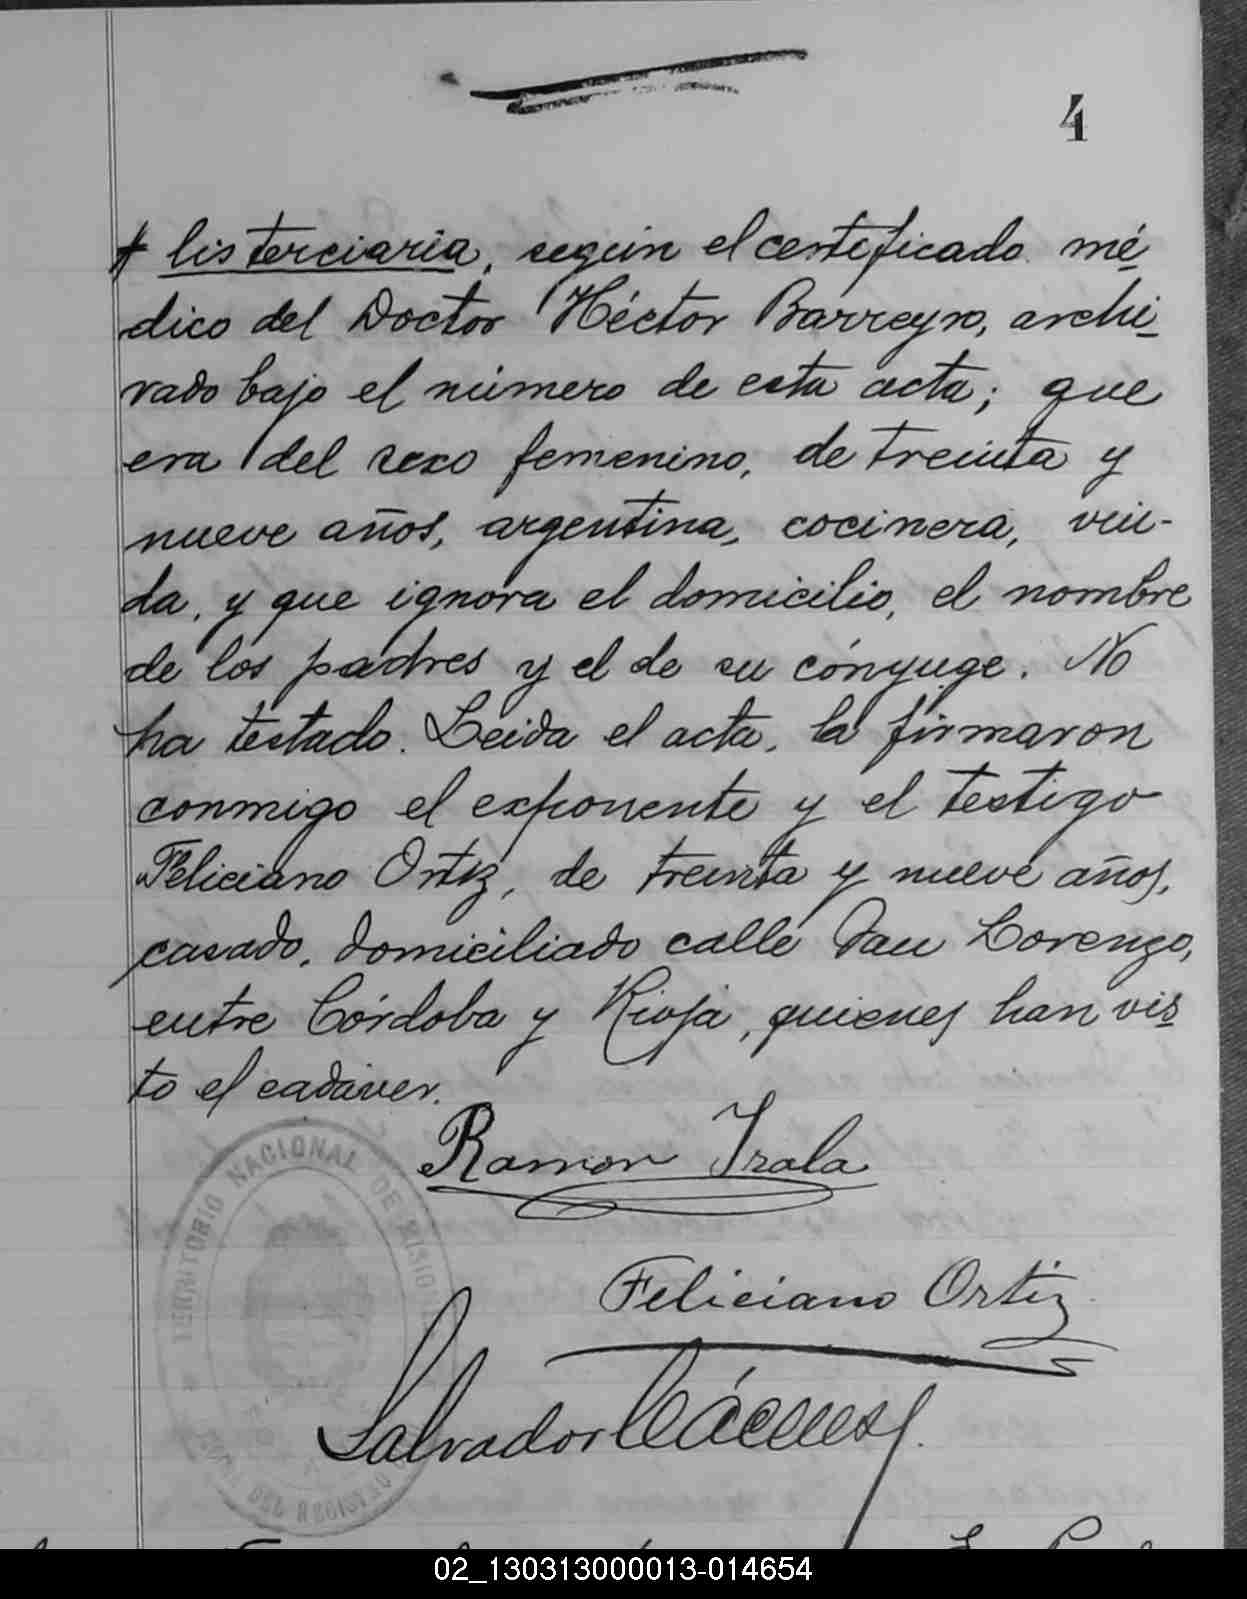 4
lis terciaria, según el certificado mé-
dico del Doctor Héctor Barreyro, archi-
vado bajo el número de esta acta; que
era del sexo femenino, de treinta y
nueve años, argentina, cocinera, viu-
da, y que ignora el domicilio, el nombre
de los padres y el de su cónyuge. No
ha testado. Leida el acta, la firmaron
conmigo el exponente y el testigo
Feliciano Ortiz, de treinta y nueve años,
casado, domiciliado calle San Lorenzo,
entre Córdoba y Rioja, quienes han vis-
to el cadáver.
Ramon Irala
TERRITORIO NACIONAL DE MISIONES
Feliciano Ortiz
Salvador Cáceres
DEL REGISTRO
02_130313000013-014654